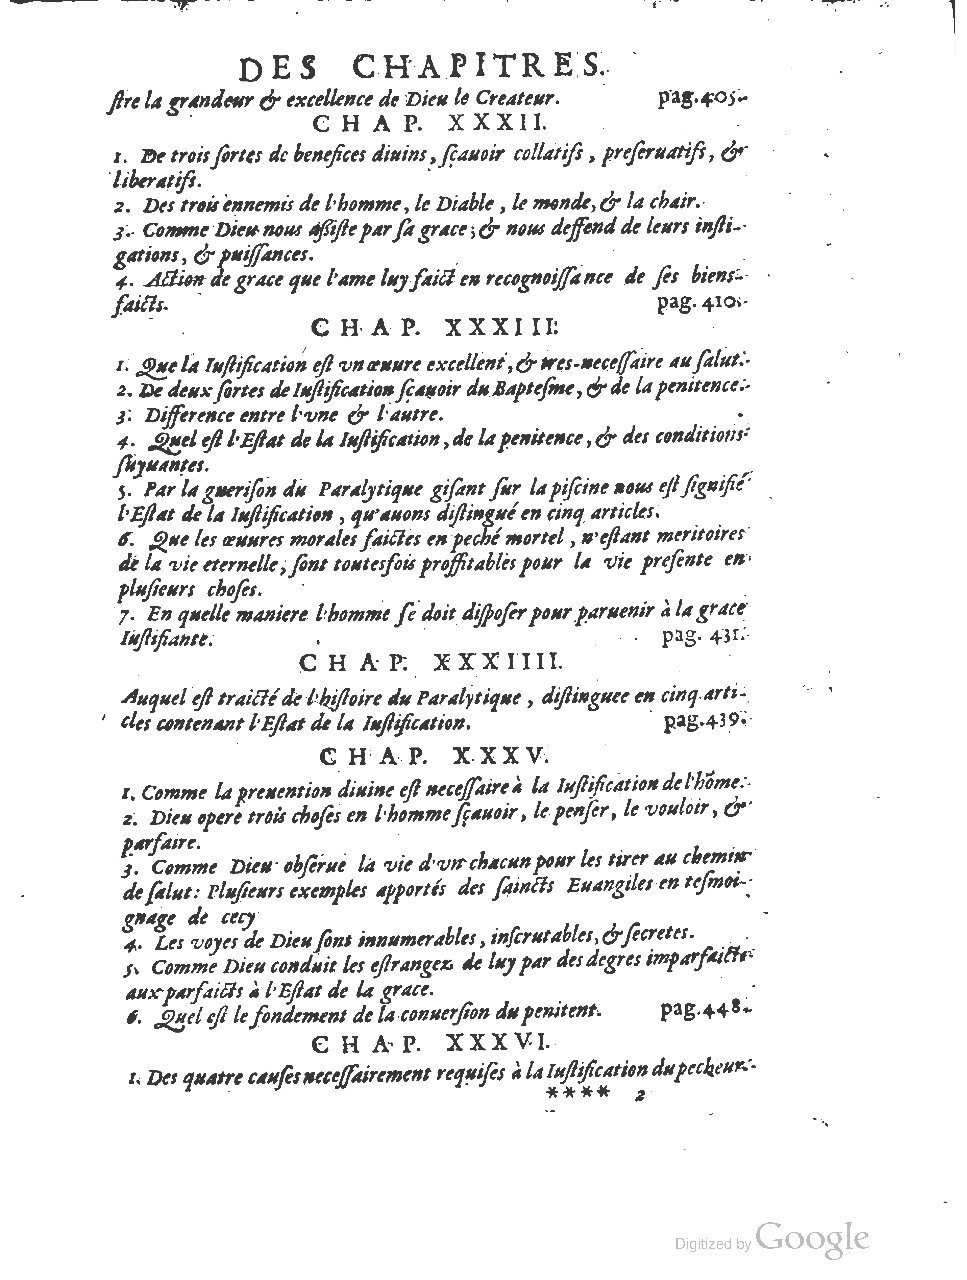 DES CHAPITRES.
ſtre la grandeur & excellence de Dieu le Createur. pag. 405.
CHAP. XXXII.
1. De trois ſortes de benefices diuins, ſçauoir collatifs, preſeruatifs, &
liberatifs.
2. Des trois ennemis de l'homme, le Diable, le monde, & la chair.
3. Comme Dieu nous aſſiſte par ſa grace; & nous deffend de leurs inſti-
gations, & puiſſances.
4. Action de grace que l'ame luy faict en recognoiſſance de ſes biens-
faicts. pag. 410.
CHAP. XXXIII:
1. Que la Iuſtification eſt vn œuure excellent, & tres-neceſſaire au ſalut.
2. De deux ſortes de Iuſtification ſcauoir du Bapteſme, & de la penitence.
3. Difference entre l'vne & l'autre.
4. Quel eſt l'Eſtat de la Iuſtification, de la penitence, & des conditions
ſuyuantes.
5. Par la gueriſon du Paralytique giſant ſur la piſcine nous eſt ſignifié
l'Eſtat de la Iuſtification, qu'auons diſtingué en cinq articles.
6. Que les œuures morales faictes en peché mortel, n'eſtant meritoires
de la vie eternelle, ſont toutesfois proffitables pour la vie preſente en
pluſieurs choſes.
7. En quelle maniere l'homme ſe doit diſpoſer pour paruenir à la grace
Iuſtifiante. pag. 431.
CHAP. XXXIIII.
Auquel eſt traicté de l'hiſtoire du Paralytique, diſtinguee en cinq arti-
cles contenant l'Eſtat de la Iuſtification. pag. 439.
CHAP. XXXV.
1. Comme la preuention diuine eſt neceſſaire à la Iuſtification de l'hõme.
2. Dieu opere trois choſes en l'homme ſçauoir, le penſer, le vouloir, &
parfaire.
3. Comme Dieu obſerue la vie d'vn chacun pour les tirer au chemin
de ſalut: Pluſieurs exemples apportés des ſaincts Euangiles en teſmoi-
gnage de cecy
4. Les voyes de Dieu ſont innumerables, inſcrutables, & ſecretes.
5. Comme Dieu conduit les eſtrangez de luy par des degres imparfaicts
aux parfaicts à l'Eſtat de la grace.
6. Quel eſt le fondement de la conuerſion du penitent. pag. 448.
CHAP. XXXVI.
1. Des quatre cauſes neceſſairement requiſes à la Iuſtification du pecheur.
**** 2
Digitized by Google